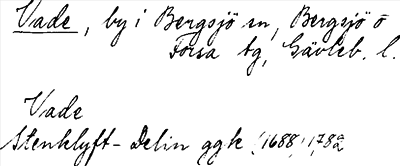 Vade, by i Bergsjö sn, Bergsjö o
Forsa tg, Gävleb. l.
Vade
Stenklyft- Delin ggk (1688)